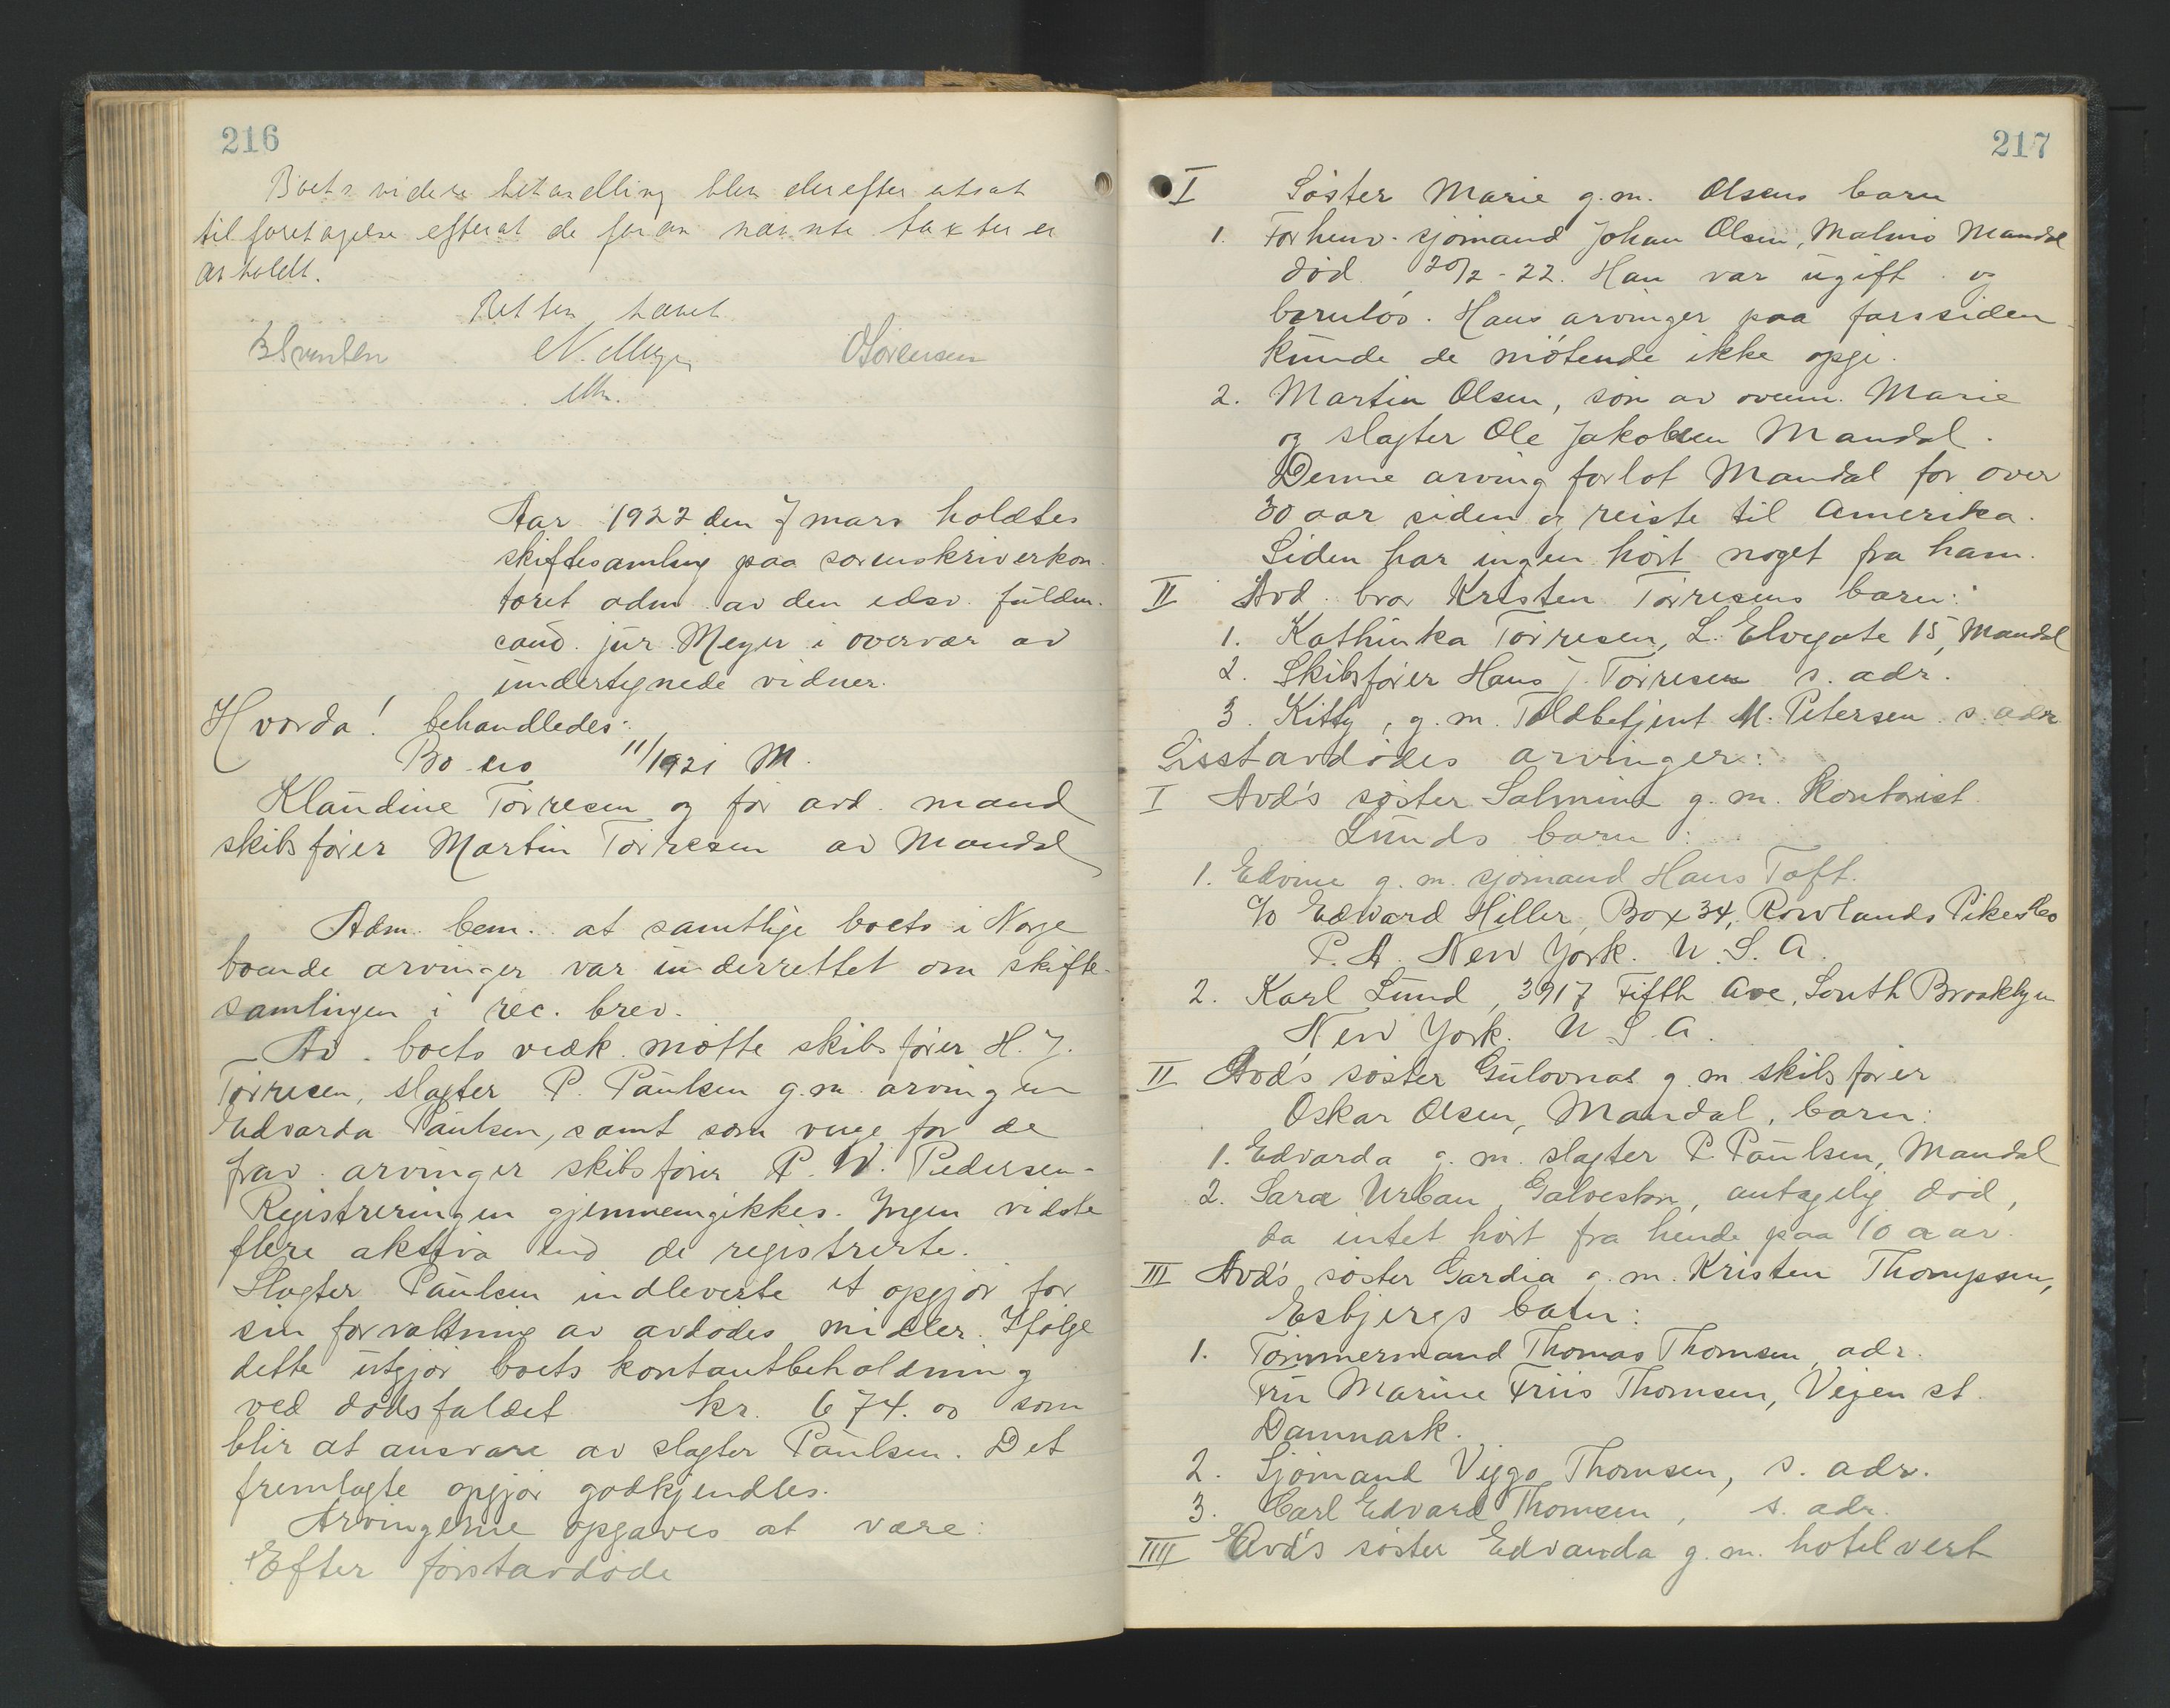 216
Boets videre behandling blev derefter utsat
til foretagelse efterat de foran nævnte takster er
avholdt.
Retten hævet
N. Meyer
OSørensen
Aar 1922 den 7 mars holdtes
skiftesamling paa sorenskriverkon-
toret adm. av den edsv. fuldm.
cand. jur. Meyer i overvær av
undertegnede vidner.
Hvorda! behandledes:
Bo no 11/1921 M.
Klaudine Tørresen og før avd. mand
skibsfører Martin Tørresen av Mandal
Adm. bem. at samtlige boets i Norge
boende arvinger var underrettet om skifte-
samlingen i rec. brev.
Av boets vedk. møtte skibsfører H. J.
Tørresen, slagter P. Paulsen g.m. arvingen
Edvarda Paulsen, samt som verge for de
frav. arvinger skibsfører P. W. Pedersen-
Registreringen gjennemgikkes. Ingen vidste
flere aktiva end de registrerte.
Slagter Paulsen indleverte et opgjør for
sin forvaltning av avdødes midler. Ifølge
dette utgjør boets kontantbeholdning
ved dødsfaldet kr. 674.00 som
blir at ansvare av slagter Paulsen. Det
fremlagte opgjør godkjendtes.
Arvingerne opgaves at være:
Efter førstavdøde
217
I Søster Marie g.m. Olsens barn
1. Forhenv. sjømand Johan Olsen, Malmø Mandal
død 20/2-22. Han var ugift og
barnløs. Hans arvinger paa farssiden
kunde de møtende ikke opgi.
2. Martin Olsen, søn av ovenn. Marie
og slagter Ole Jakobsen Mandal.
Denne arving forlot Mandal for over
30 aar siden og reiste til Amerika.
Siden har ingen hørt noget fra ham.
II Avd. bror Kristen Tørresens barn:
1. Kathinka Tørresen, L. Elvegate 15, Mandal
2. Skibsfører Hans J. Tørresen s. adr.
3. Kitty, g.m. Toldbetjent M. Petersen s. adr
Sisstavdødes arvinger:
I Avd's søster Salmine g.m. Kontorist
Lunds barn:
1. Edvine g.m. sjømand Hans Toft.
c/o Edward Hiller, Box 34, Rowlands Pikes Co
P.A. New York. U.S.A.
2. Karl Lund, 3917 Fifth Ave, South Brooklyn
New York. U.S.A.
II Avd's søster Gulovnas g.m. skibsfører
Oskar Olsen, Mandal, barn:
1. Edvarda g.m. slagter P. Paulsen, Mandal
2. Sara Urban, Galveston, antagelig død,
da intet hørt fra hende paa 10 aar.
III Avd's søster Gardia g.m. Kristen Thompsen,
Esbjergs barn:
1. Tømmermand Thomas Thomsen, adr.
Fru Marine Friis Thomsen, Vejen st.
Danmark.
2. Sjømand Viggo Thomsen, s. adr.
3. Carl Edvard Thomsen, s. adr.
IIII Avd's søster Edvarda g.m. hotelvert